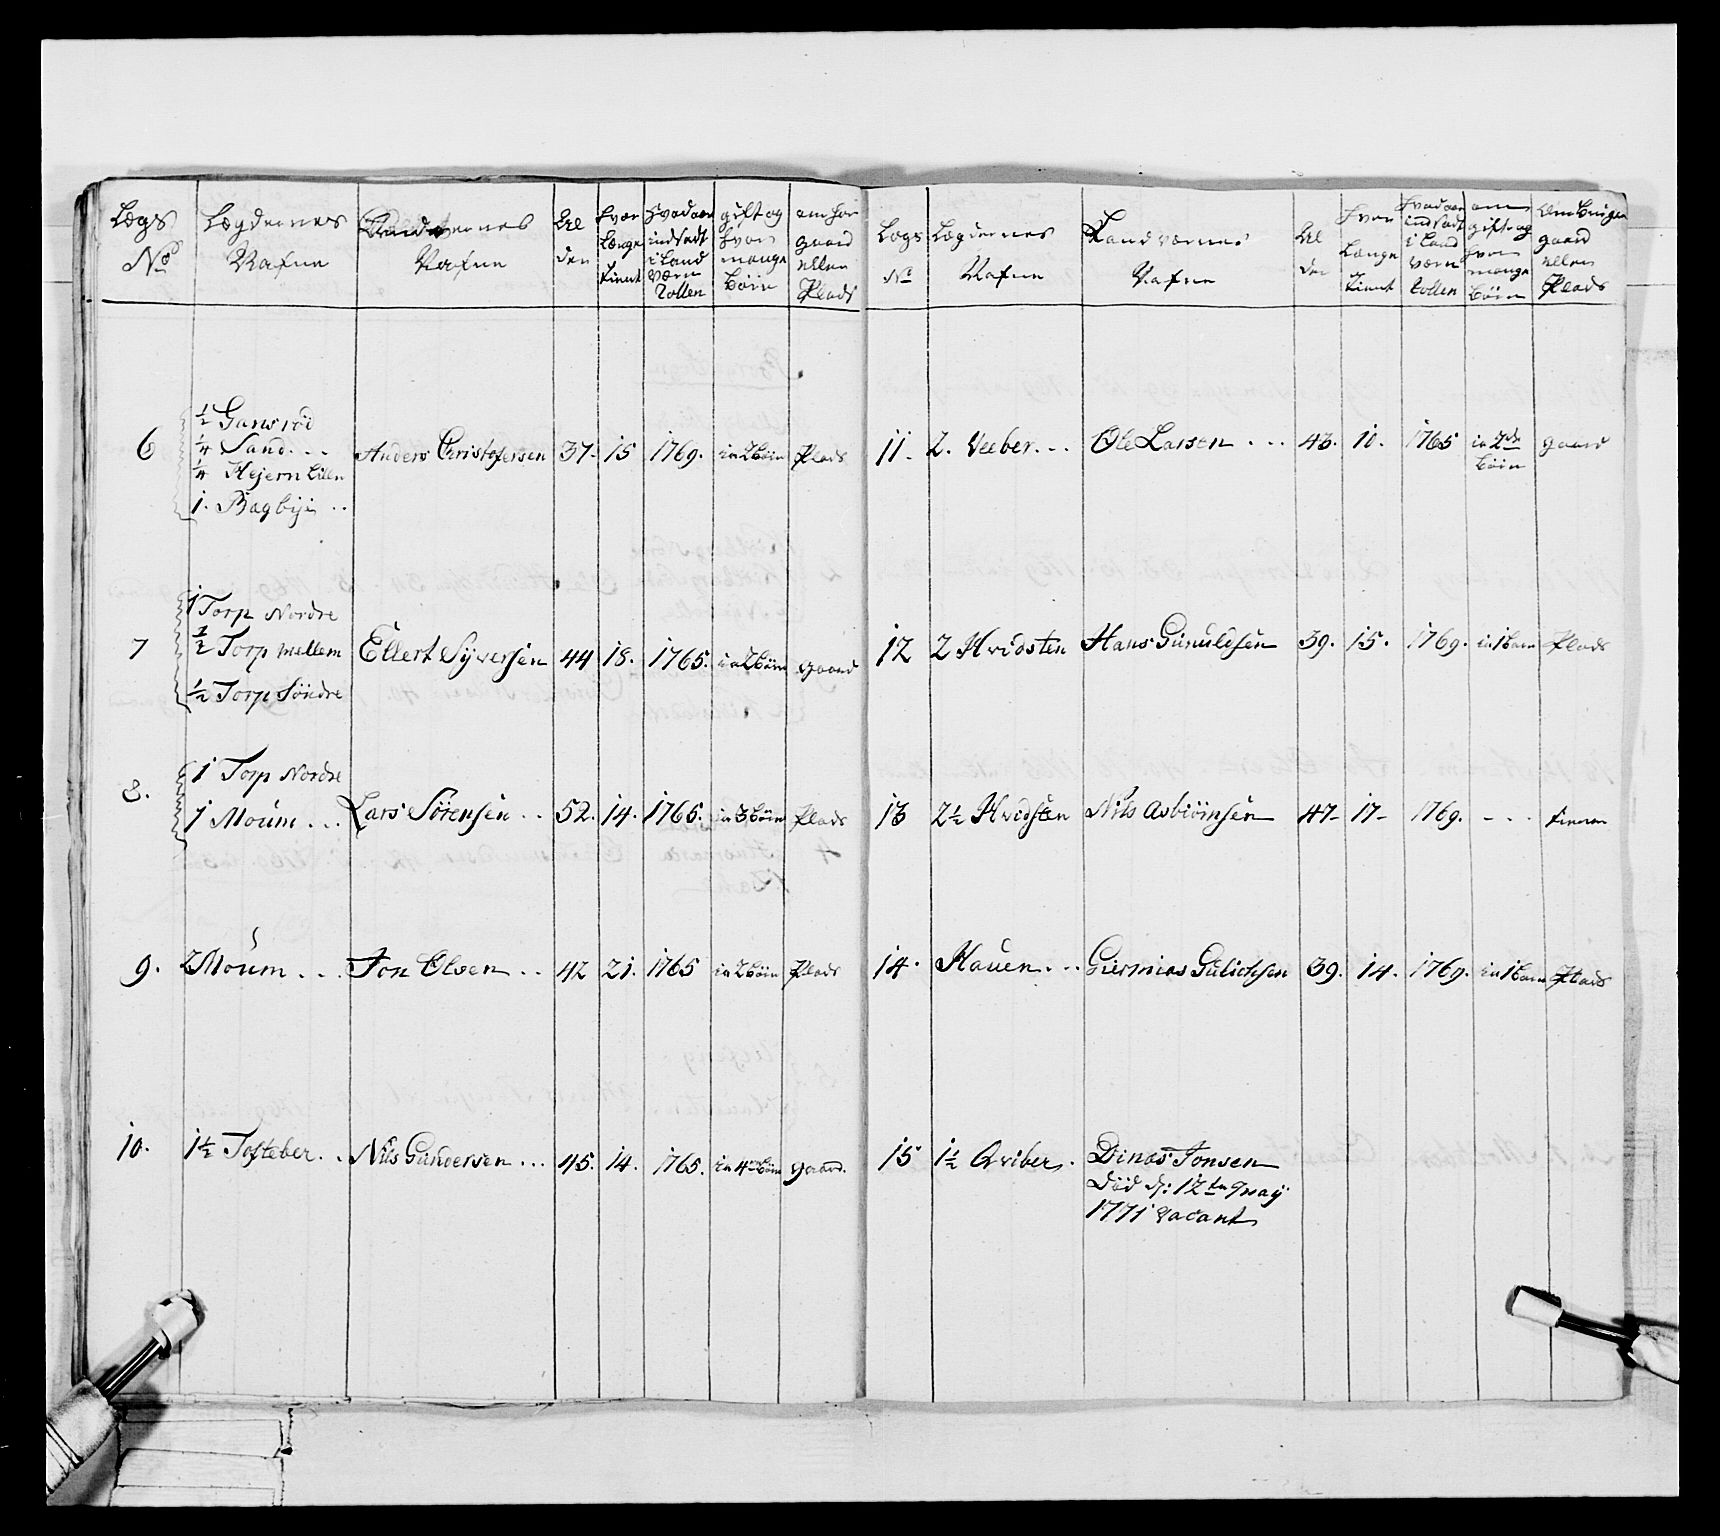 Lægs No
Lægdernes Nafne
Landværnes Nafne
Al der
hvor Længe tient
hvad aar indsadt i Land Værn Rollen
gift og hvor mange Börn
om har gaard eller Plads
6
1/2 Gansröd
1/4 Sand...
1/4 Kejern Lilen
1. Bagbÿe ..
Anders Christofersen 37. 15 1769. in 2 börn Plads
7
1 Torp Nordre
1/2 Torp mellem
1/2 Torp Söndre
Ellert Syversen 44 18. 1765. in 2 börn gaard
8.
1 Torp Nordre
1 Moum...
Lars Sörensen .. 52. 14. 1765. in 3 börn Plads
9. 2 Moum... Jon Olsen .. 42 21. 1765 in 2 börn Plads
10. 1 1/2 Tofteber. . Nils Gundersen ... 45. 14. 1765. in 4 börn gaard.
Lægs No
Lægdernes Nafne
Landværnes Nafne
Al der
hvor Længe tient
hvad aar indsadt i Land Værn Rollen
om gift og hvor mange Börn
om bruger gaard eller Plads
11. 2. Veeber... Ole Larsen ... 43. 10. 1765 in 2de börn gaard
12 2 Hvidsten Hans Gunuldsen 39. 15. 1769. in 1 barn Plads
13 2 1/2 Hvidsten Nils Asbiörnsen 47- 17- 1769. - . . tiener
14. Hauen... Giermias Gulichsen 39. 14. 1769. in 1 barn Plads
15 1 1/2 Qviber. Dines Jonsen
död d: 12te Maÿ
1771 vacant